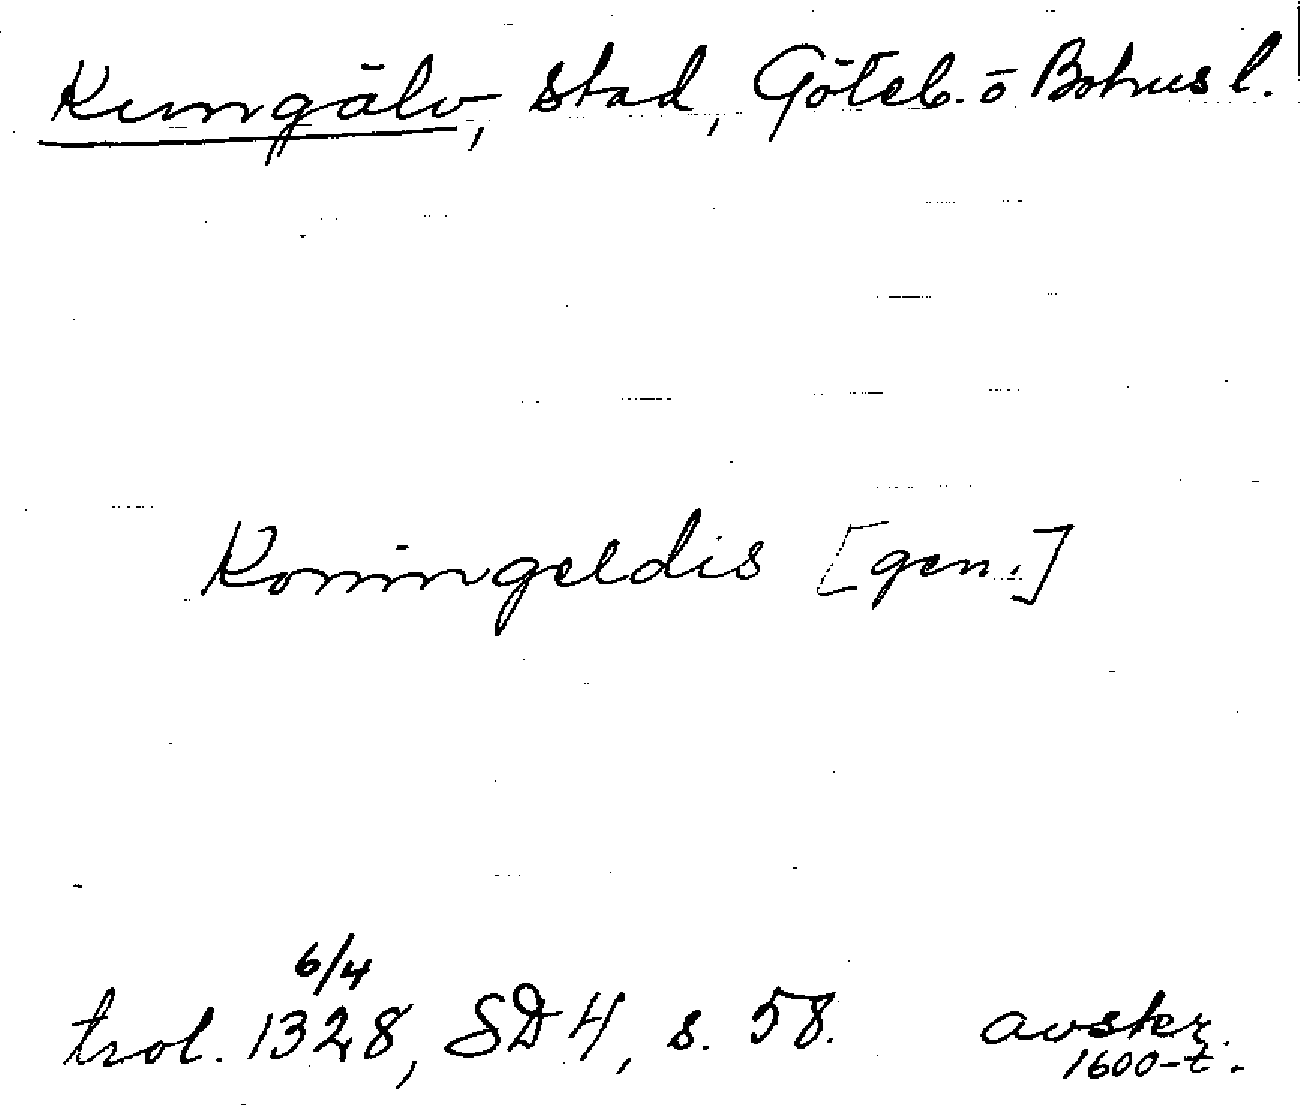 Kungälv, stad, Göteb. o Bohus l.
Koningeldis [gen.]
6/4
trol. 1328, SD 4, s. 58. avskr.
1600-t.